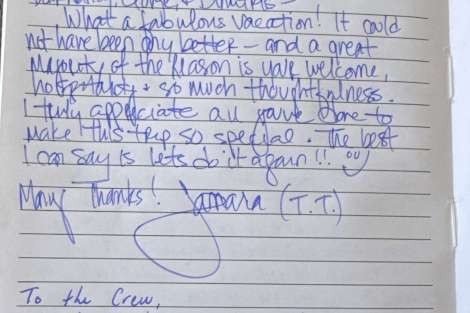 What a fabulous vacation! It could
not have been any better – and a great
majority of the reason is your welcome,
hospitality + so much thoughtfulness.
I truly appreciate all you've done to
make this trip so special. The best
I can say is lets do it again!!
Many Thanks! Tamara (T.T.)
To the Crew,